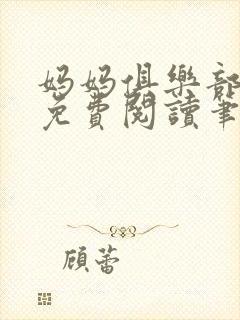 妈妈俱樂部
免費閱讀筆
顾蕾